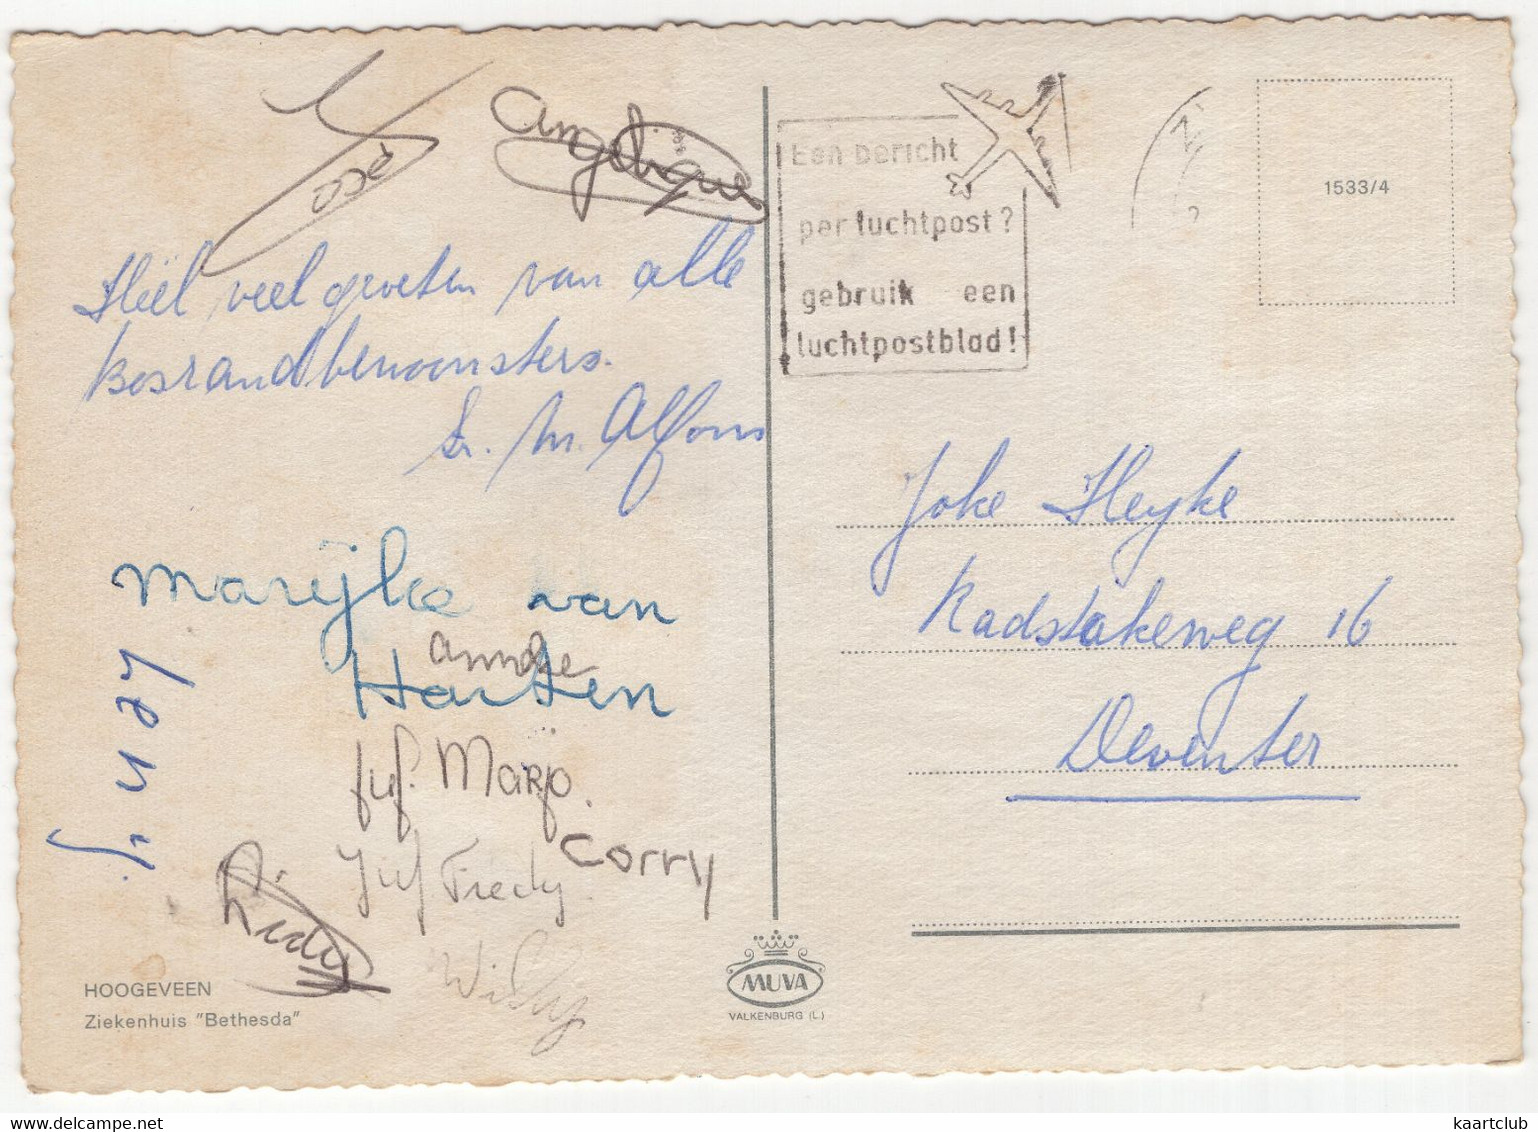 Angelique
Heel veel groeten van alle
Bosrandbewoonsters.
Sr. M. Alfons
Marijke van
Harten
Anneke
Juf. Marjo.
Corry
Juf Fredy.
Willy
HOOGEVEEN
Ziekenhuis "Bethesda"
Een bericht
per luchtpost?
gebruik een
luchtpostblad!
1533/4
Joke Heyke
Radstakeweg 16
Deventer
MUVA
VALKENBURG (L.)
kaartclub